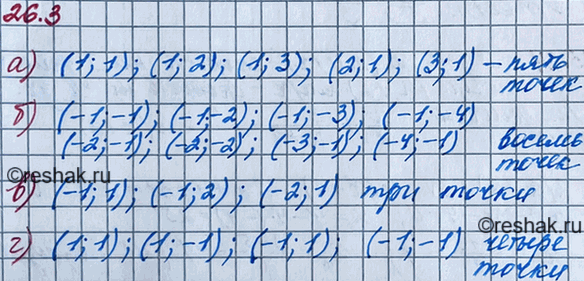 26.3
а) (1; 1); (1; 2); (1; 3); (2; 1); (3; 1) – пять
точек
б) (-1; -1); (-1; -2); (-1; -3); (-1; -4)
(-2; -1); (-2; -2); (-3; -1); (-4; -1) восемь
точек
в) (-1; 1); (-1; 2); (-2; 1) три точки
г) (1; 1); (1; -1); (-1; 1); (-1; -1) четыре
точки
©reshak.ru
©reshak.ru